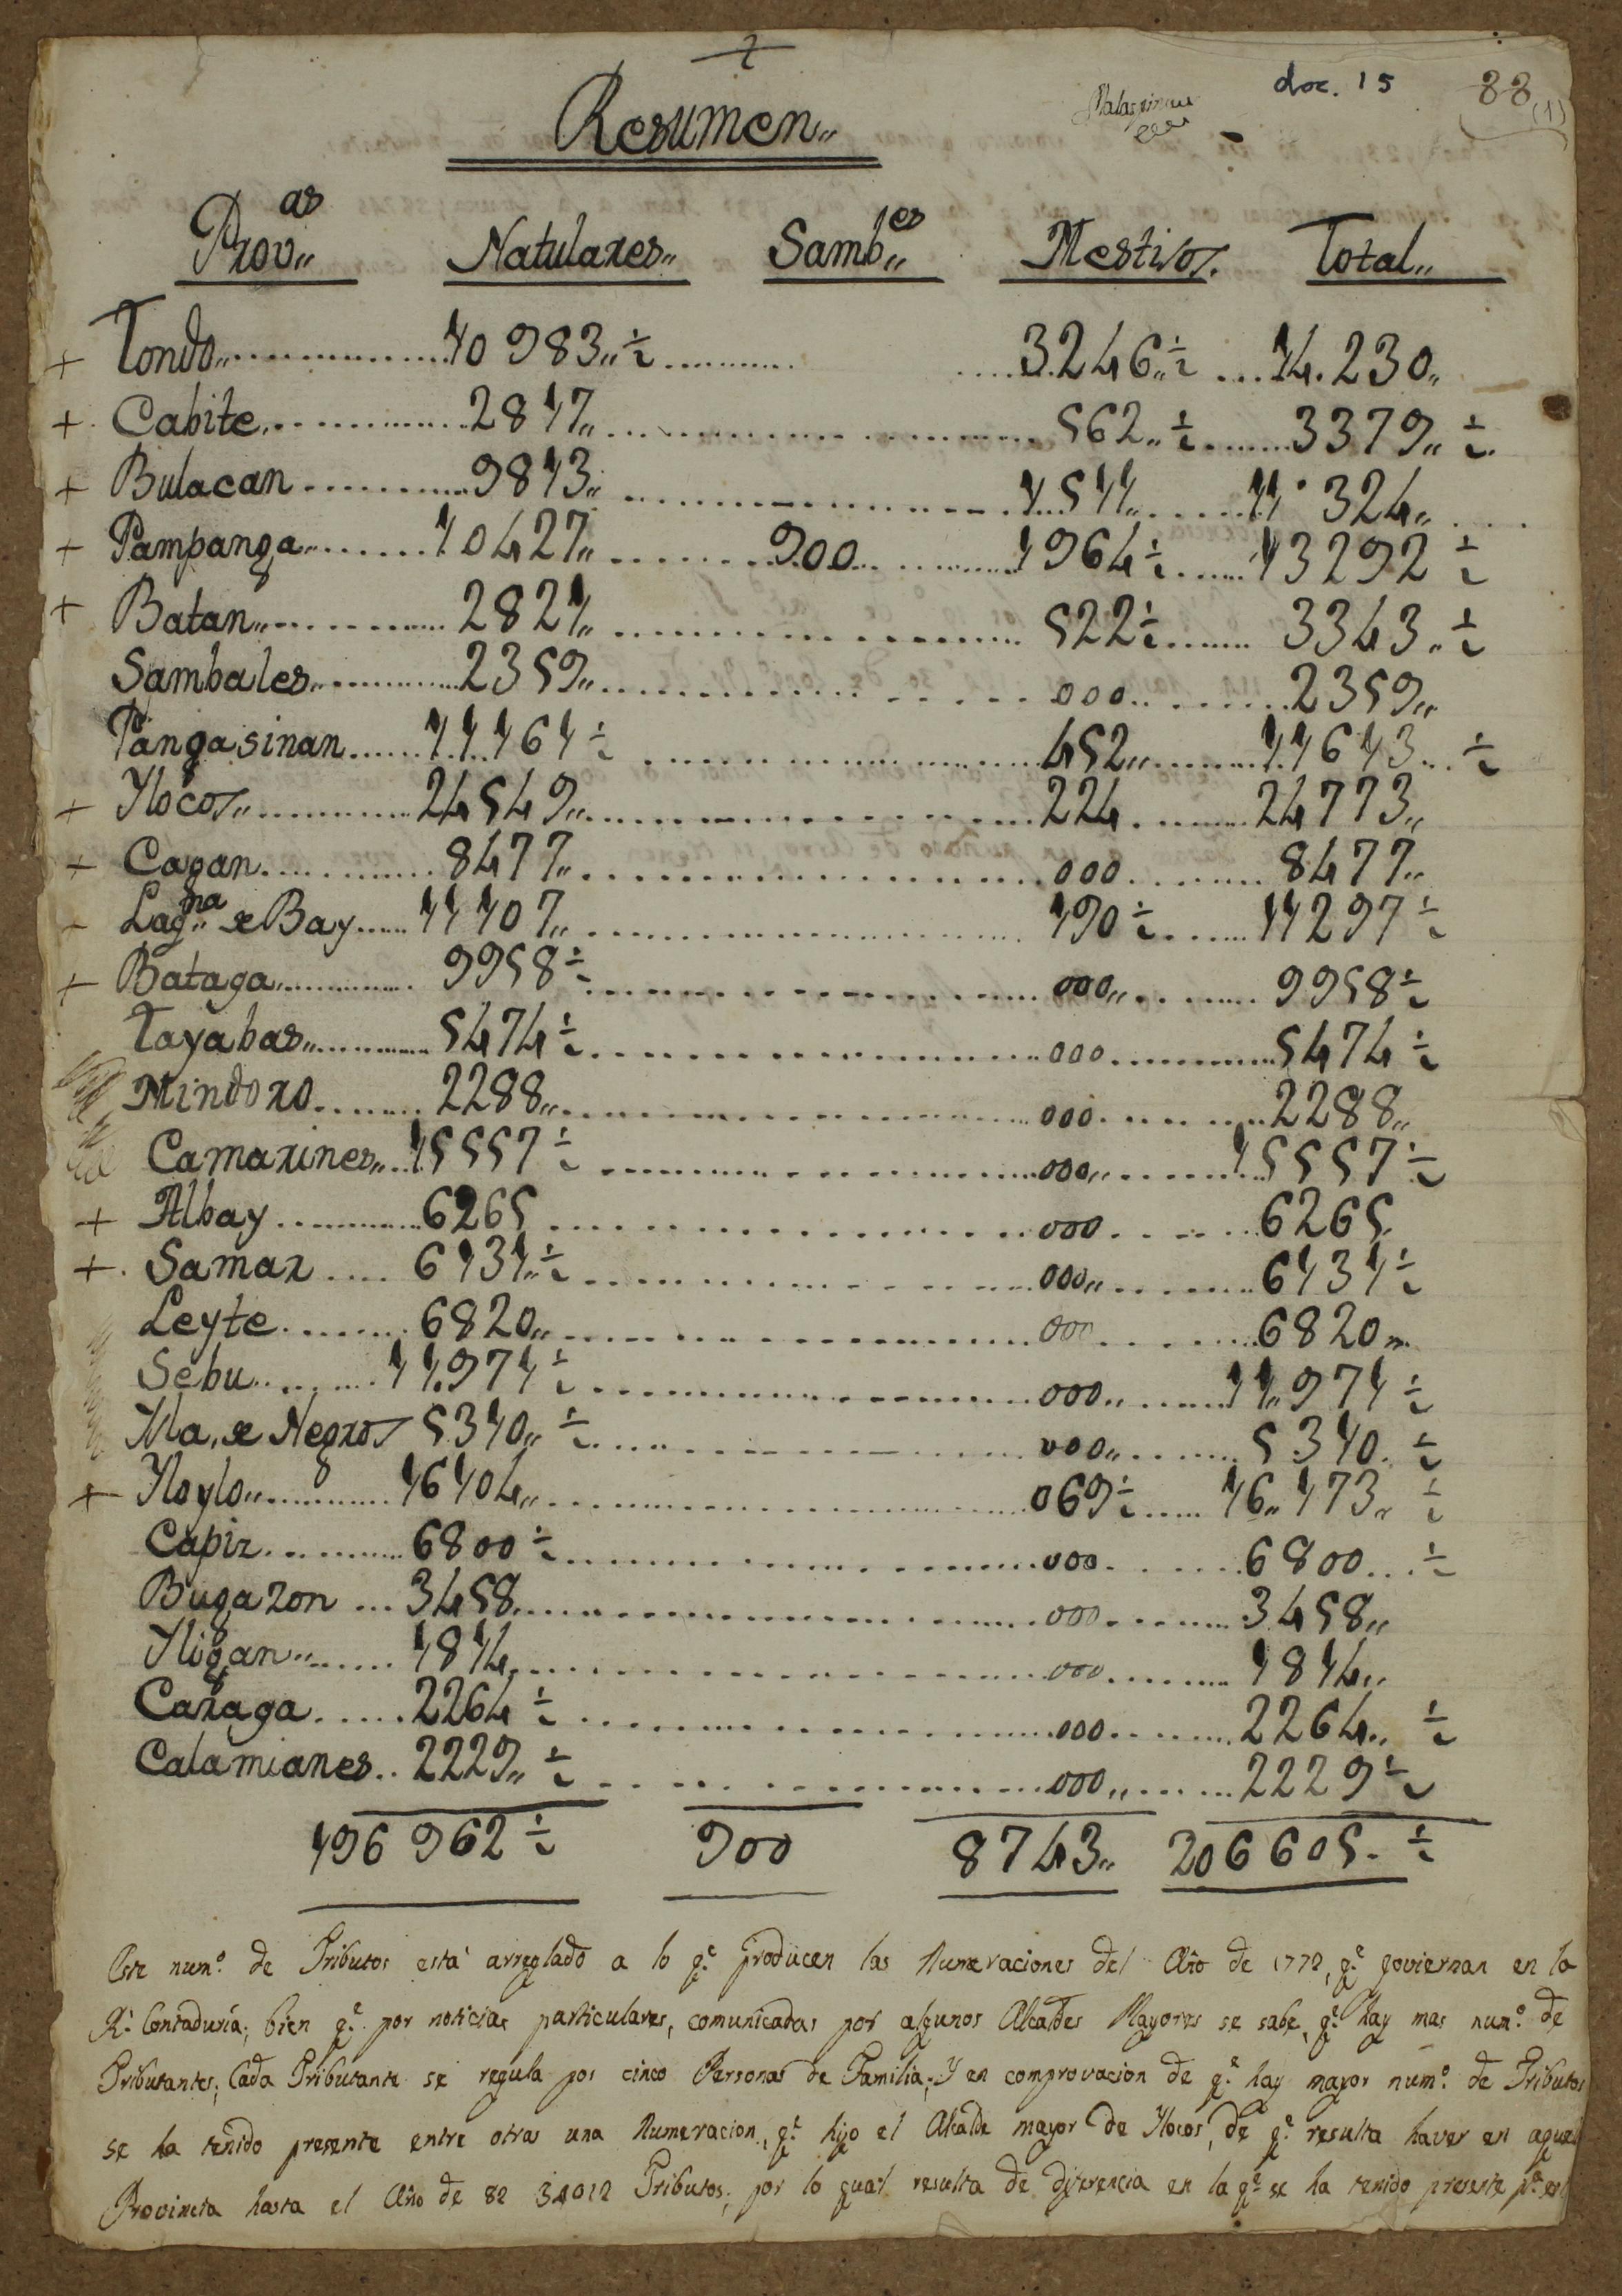 2
doc. 15
88
(1)
Resumen„
Prov„as Natulares„ Samb„es Mestisos. Total„
+ Tondo„ 10983„½ 3.246„½ 14.230„
+ Cabite 2817„ 562„½ 3379„½
+ Bulacan 9813„ 1511„ 11324„
+ Pampanga 10427„ 900 1964½ 13292½
+ Batan„ 2821„ 522½ 3343„½
Sambales„ 2359„ 000 2359„
Pangasinan 11161½ 452„ 11613½
+ Ylocos„ 24549„ 224 24773„
+ Cagan 8477„ 000 8477„
- Lag„na de Bay 11107„ 190½ 11297½
+ Bataga 9958½ 000„ 9958½
Tayabas„ 5474½ 000 5474½
Mindoro 2288„ 000 2288„
Camarines„ 15557½ 000„ 15557½
+ Albay 6265 000 6265
+ Samar 6131„½ 000„ 6131½
Leyte 6820„ 000 6820„
Sebu 11.971½ 000„ 11„971½
Yla, de Negros 5310„½ 000„ 5310½
+ Yloylo„ 16104„ 069½ 16„173„½
Capiz 6800½ 000 6800½
Bugazon 3458 000 3458„
Yligan„ 1814 000 1814„
Caraga 2264½ 000 2264„½
Calamianes 2229„½ 000„ 2229½
196962½ 900 8743„ 206605½
Este num.º de Tributos está arreglado a lo q.e producen las Numeraciones del Año de 1772, q.e goviernan en la
R.l Contaduría; bien q.e por noticias particulares, comunicadas por algunos Alcaldes Mayores se sabe, q.e hay mas num.º de
Tributantes; Cada Tributante se regula por cinco Personas de Familia; Y en comprovacion de q.e hay mayor num.º de Tributos
se ha tenido presente entre otras una Numeracion, q.e hizo el Alcalde mayor de Ylocos, de q.e resulta haver en aquel
Provincia hasta el Año de 82 34012 Tributos; por lo qual resulta de diferencia en la q.e se ha tenido presente p.a